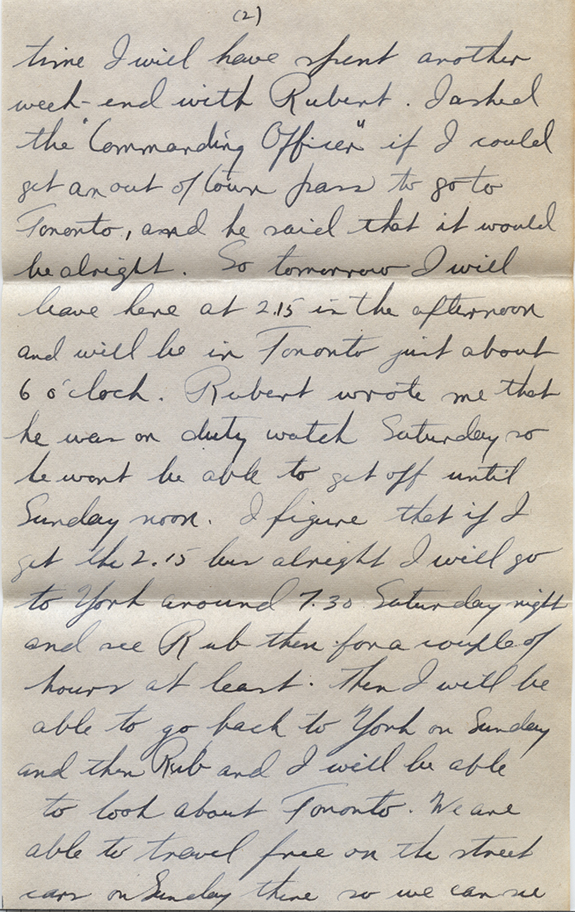 (2)
time I will have spent another
week-end with Rubert. I asked
the "Commanding Officer" if I could
get an out of town pass to go to
Toronto, and he said that it would
be alright. So tomorrow I will
leave here at 2.15 in the afternoon
and will be in Toronto just about
6 o'clock. Rubert wrote me that
he was on duty watch Saturday so
he wont be able to get off until
Sunday noon. I figure that if I
get the 2.15 bus alright I will go
to York around 7.30 Saturday night
and see Rub then for a couple of
hours at least. Then I will be
able to go back to York on Sunday
and then Rub and I will be able
to look about Toronto. We are
able to travel free on the street
cars on Sunday there so we can see